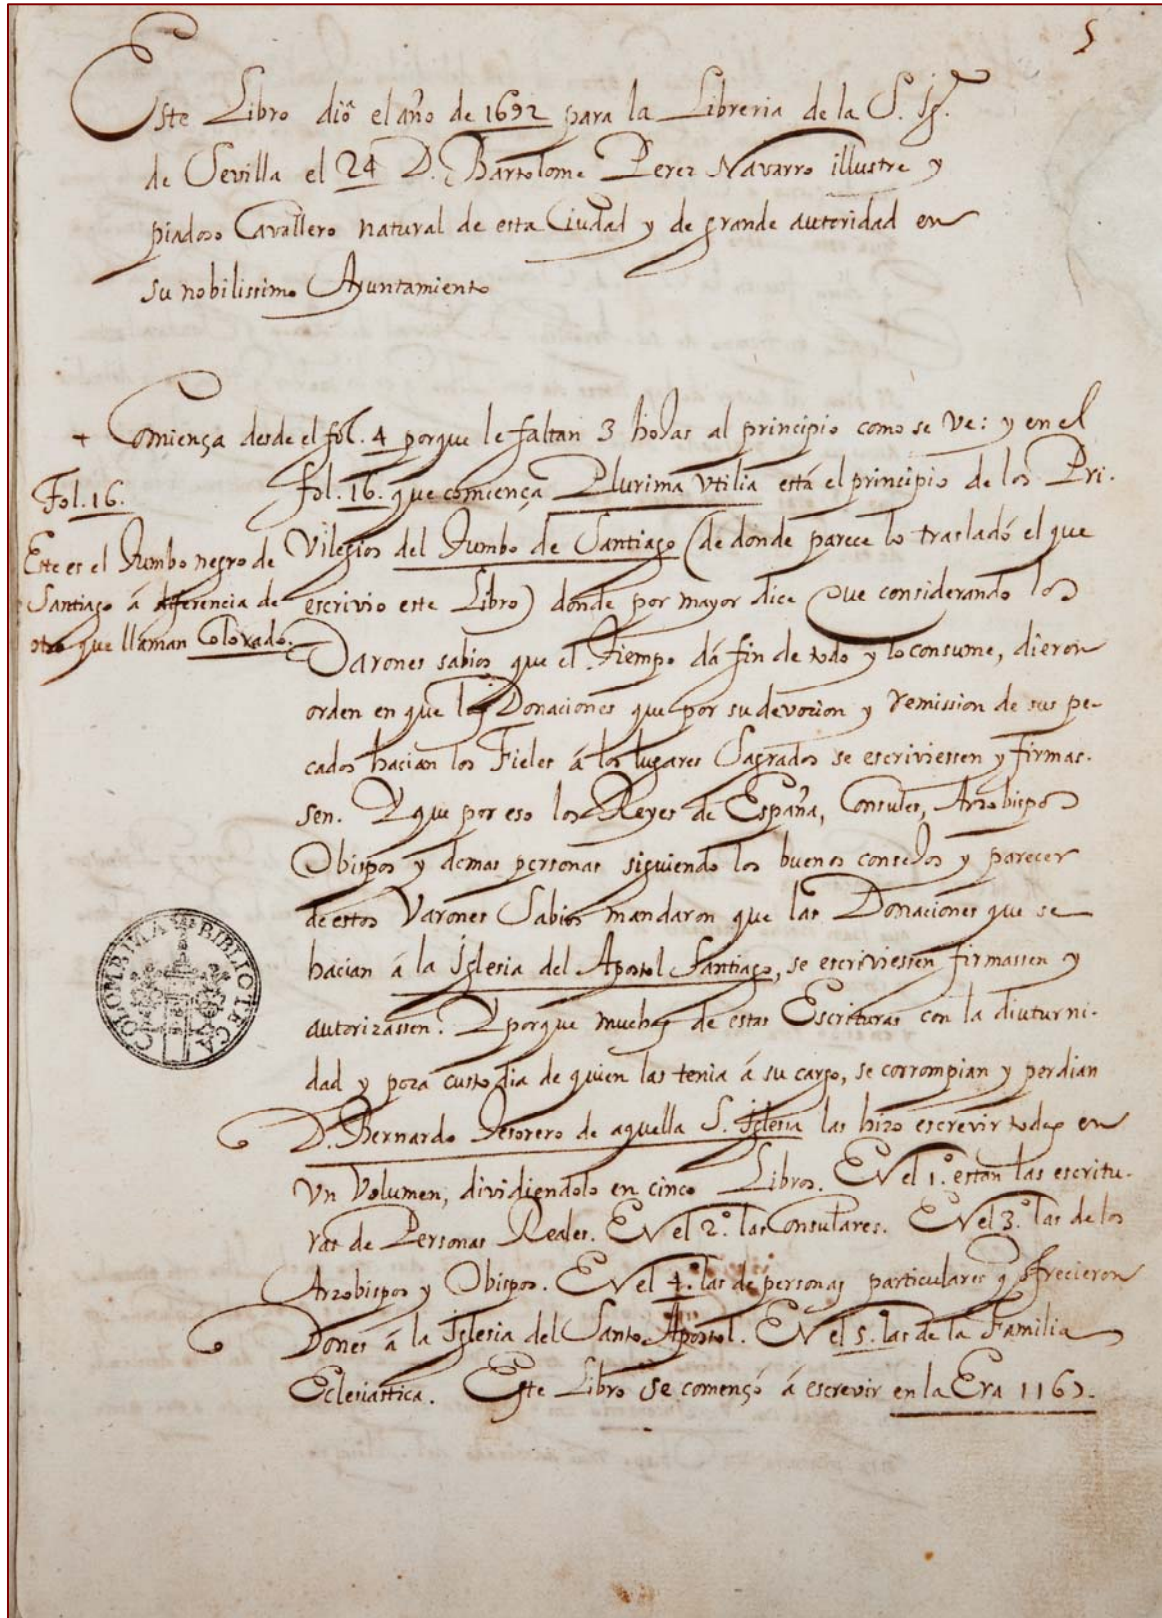 5
Este Libro dió el año de 1692 para la Libreria de la S. Igª.
de Sevilla el 24 D. Bartolome Perez Navarro illustre y
piadoso Cavallero natural de esta Ciudad y de grande autoridad en
su nobilissimo Ayuntamiento
+ Comiença desde el fol. 4 porque le faltan 3 hojas al principio como se ve: y en el
Fol. 16.
fol. 16. que comiença Plurima Vtilia está el principio de los Pri-
Este es el Tumbo negro de
Santiago á diferencia de
otro que llaman Colorado.
vilegios del Tumbo de Santiago (de donde parece lo trasladó el que
escrivio este Libro) donde por mayor dice Que considerando los
Varones sabios que el Tiempo dá fin de todo y lo consume, dieron
orden en que las Donaciones que por su devocion y remission de sus pe-
cados hacian los Fieles á los lugares Sagrados se escriviessen y firmas-
sen. Y que por eso los Reyes de España, Consules, Arzobispos
Obispos y demas personas siguiendo los buenos consejos y parecer
de estos Varones Sabios mandaron que las Donaciones que se
hacian á la Iglesia del Apostol Santiago, se escriviessen firmassen y
autorizassen. Y porque muchas de estas Escrituras con la diuturni-
dad y poca custodia de quien las tenia á su cargo, se corrompian y perdian
D. Bernardo Tesorero de aquella S. Iglesia las hizo escrevir todas en
Vn Volumen, dividiendolo en cinco Libros. En el 1.º estan las escritu-
ras de Personas Reales. En el 2.º las Consulares. En el 3.º las de los
Arzobispos y Obispos. En el 4.º las de personas particulares q ofrecieron
Dones á la Iglesia del Santo Apostol. En el 5. las de la Familia
Eclesiastica. Este Libro se començó á escrevir en la Era 1167.
BIBLIOTECA COLOMBINA